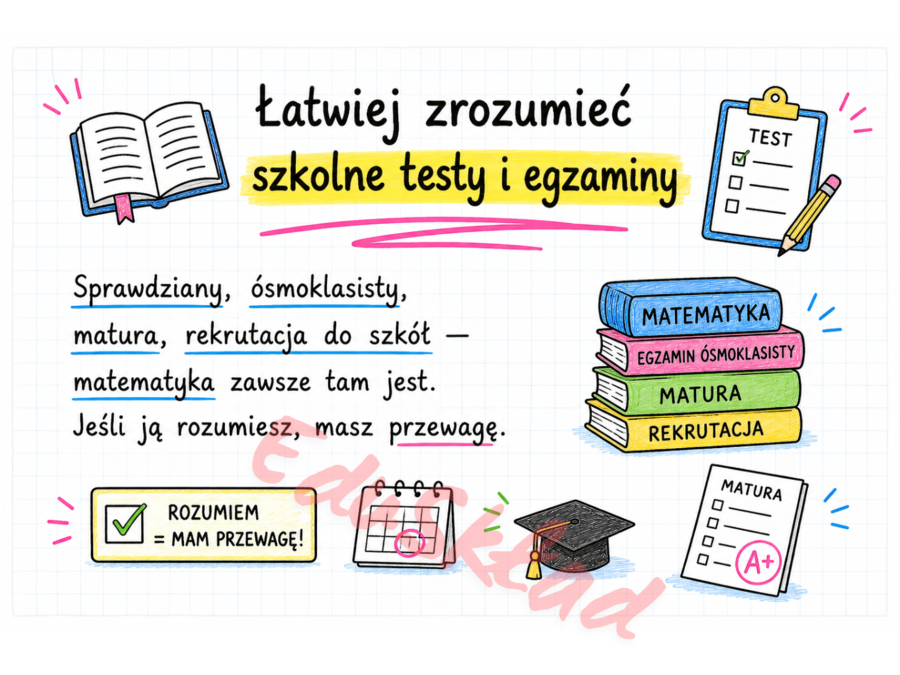 Łatwiej zrozumieć
szkolne testy i egzaminy
TEST
Sprawdziany, ósmoklasisty,
matura, rekrutacja do szkół —
matematyka zawsze tam jest.
Jeśli ją rozumiesz, masz przewagę.
MATEMATYKA
EGZAMIN ÓSMOKLASISTY
MATURA
REKRUTACJA
ROZUMIEM
= MAM PRZEWAGĘ!
MATURA
A+
EduSkład